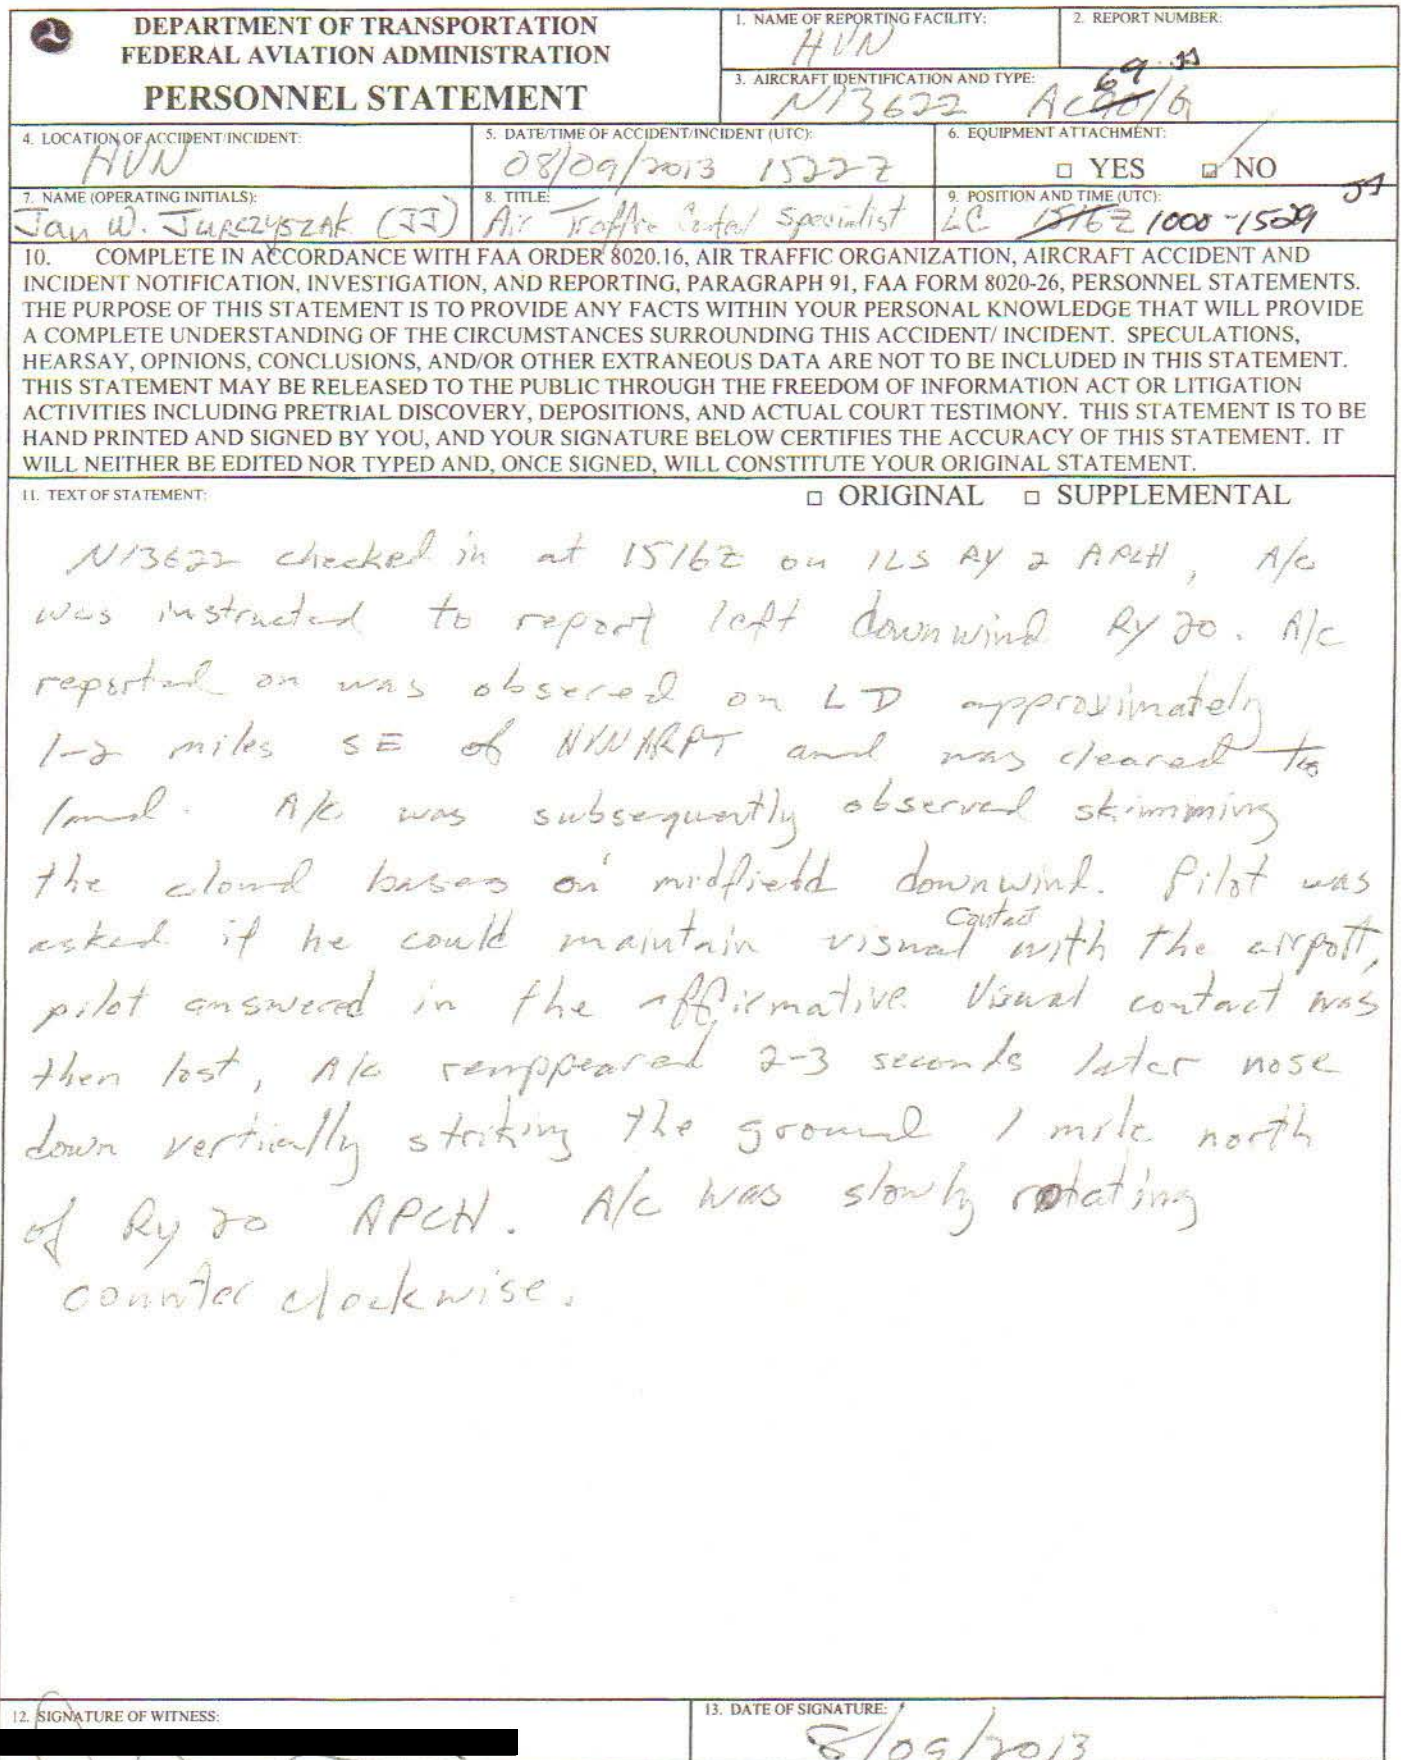 DEPARTMENT OF TRANSPORTATION
FEDERAL AVIATION ADMINISTRATION
PERSONNEL STATEMENT
1. NAME OF REPORTING FACILITY:
HVN
2. REPORT NUMBER:
3. AIRCRAFT IDENTIFICATION AND TYPE:
69 JJ
N13622 AC90/G
4. LOCATION OF ACCIDENT/INCIDENT:
HVN
5. DATE/TIME OF ACCIDENT/INCIDENT (UTC):
08/09/2013 1522Z
6. EQUIPMENT ATTACHMENT:
YES NO
7. NAME (OPERATING INITIALS):
Jan W. Jurczyszak (JJ)
8. TITLE:
Air Traffic Control Specialist
9. POSITION AND TIME (UTC):
JJ
LC 1516Z 1000-1529
10. COMPLETE IN ACCORDANCE WITH FAA ORDER 8020.16, AIR TRAFFIC ORGANIZATION, AIRCRAFT ACCIDENT AND
INCIDENT NOTIFICATION, INVESTIGATION, AND REPORTING, PARAGRAPH 91, FAA FORM 8020-26, PERSONNEL STATEMENTS.
THE PURPOSE OF THIS STATEMENT IS TO PROVIDE ANY FACTS WITHIN YOUR PERSONAL KNOWLEDGE THAT WILL PROVIDE
A COMPLETE UNDERSTANDING OF THE CIRCUMSTANCES SURROUNDING THIS ACCIDENT/ INCIDENT. SPECULATIONS,
HEARSAY, OPINIONS, CONCLUSIONS, AND/OR OTHER EXTRANEOUS DATA ARE NOT TO BE INCLUDED IN THIS STATEMENT.
THIS STATEMENT MAY BE RELEASED TO THE PUBLIC THROUGH THE FREEDOM OF INFORMATION ACT OR LITIGATION
ACTIVITIES INCLUDING PRETRIAL DISCOVERY, DEPOSITIONS, AND ACTUAL COURT TESTIMONY. THIS STATEMENT IS TO BE
HAND PRINTED AND SIGNED BY YOU, AND YOUR SIGNATURE BELOW CERTIFIES THE ACCURACY OF THIS STATEMENT. IT
WILL NEITHER BE EDITED NOR TYPED AND, ONCE SIGNED, WILL CONSTITUTE YOUR ORIGINAL STATEMENT.
11. TEXT OF STATEMENT:
ORIGINAL SUPPLEMENTAL
N13622 checked in at 1516Z on ILS RY 2 APCH, A/c
was instructed to report left downwind Ry 20. A/c
reported on was obsered on LD approximately
1-2 miles SE of HVN ARPT and was cleared to
land. A/c was subsequently observed skimming
the cloud bases on midfield downwind. Pilot was
asked if he could maintain visual contact with the airport,
pilot answered in the affirmative. Visual contact was
then lost, A/c reappeared 2-3 seconds later nose
down vertically striking the ground 1 mile north
of Ry 20 APCH. A/c was slowly rotating
counter clockwise.
12. SIGNATURE OF WITNESS:
13. DATE OF SIGNATURE:
8/09/2013